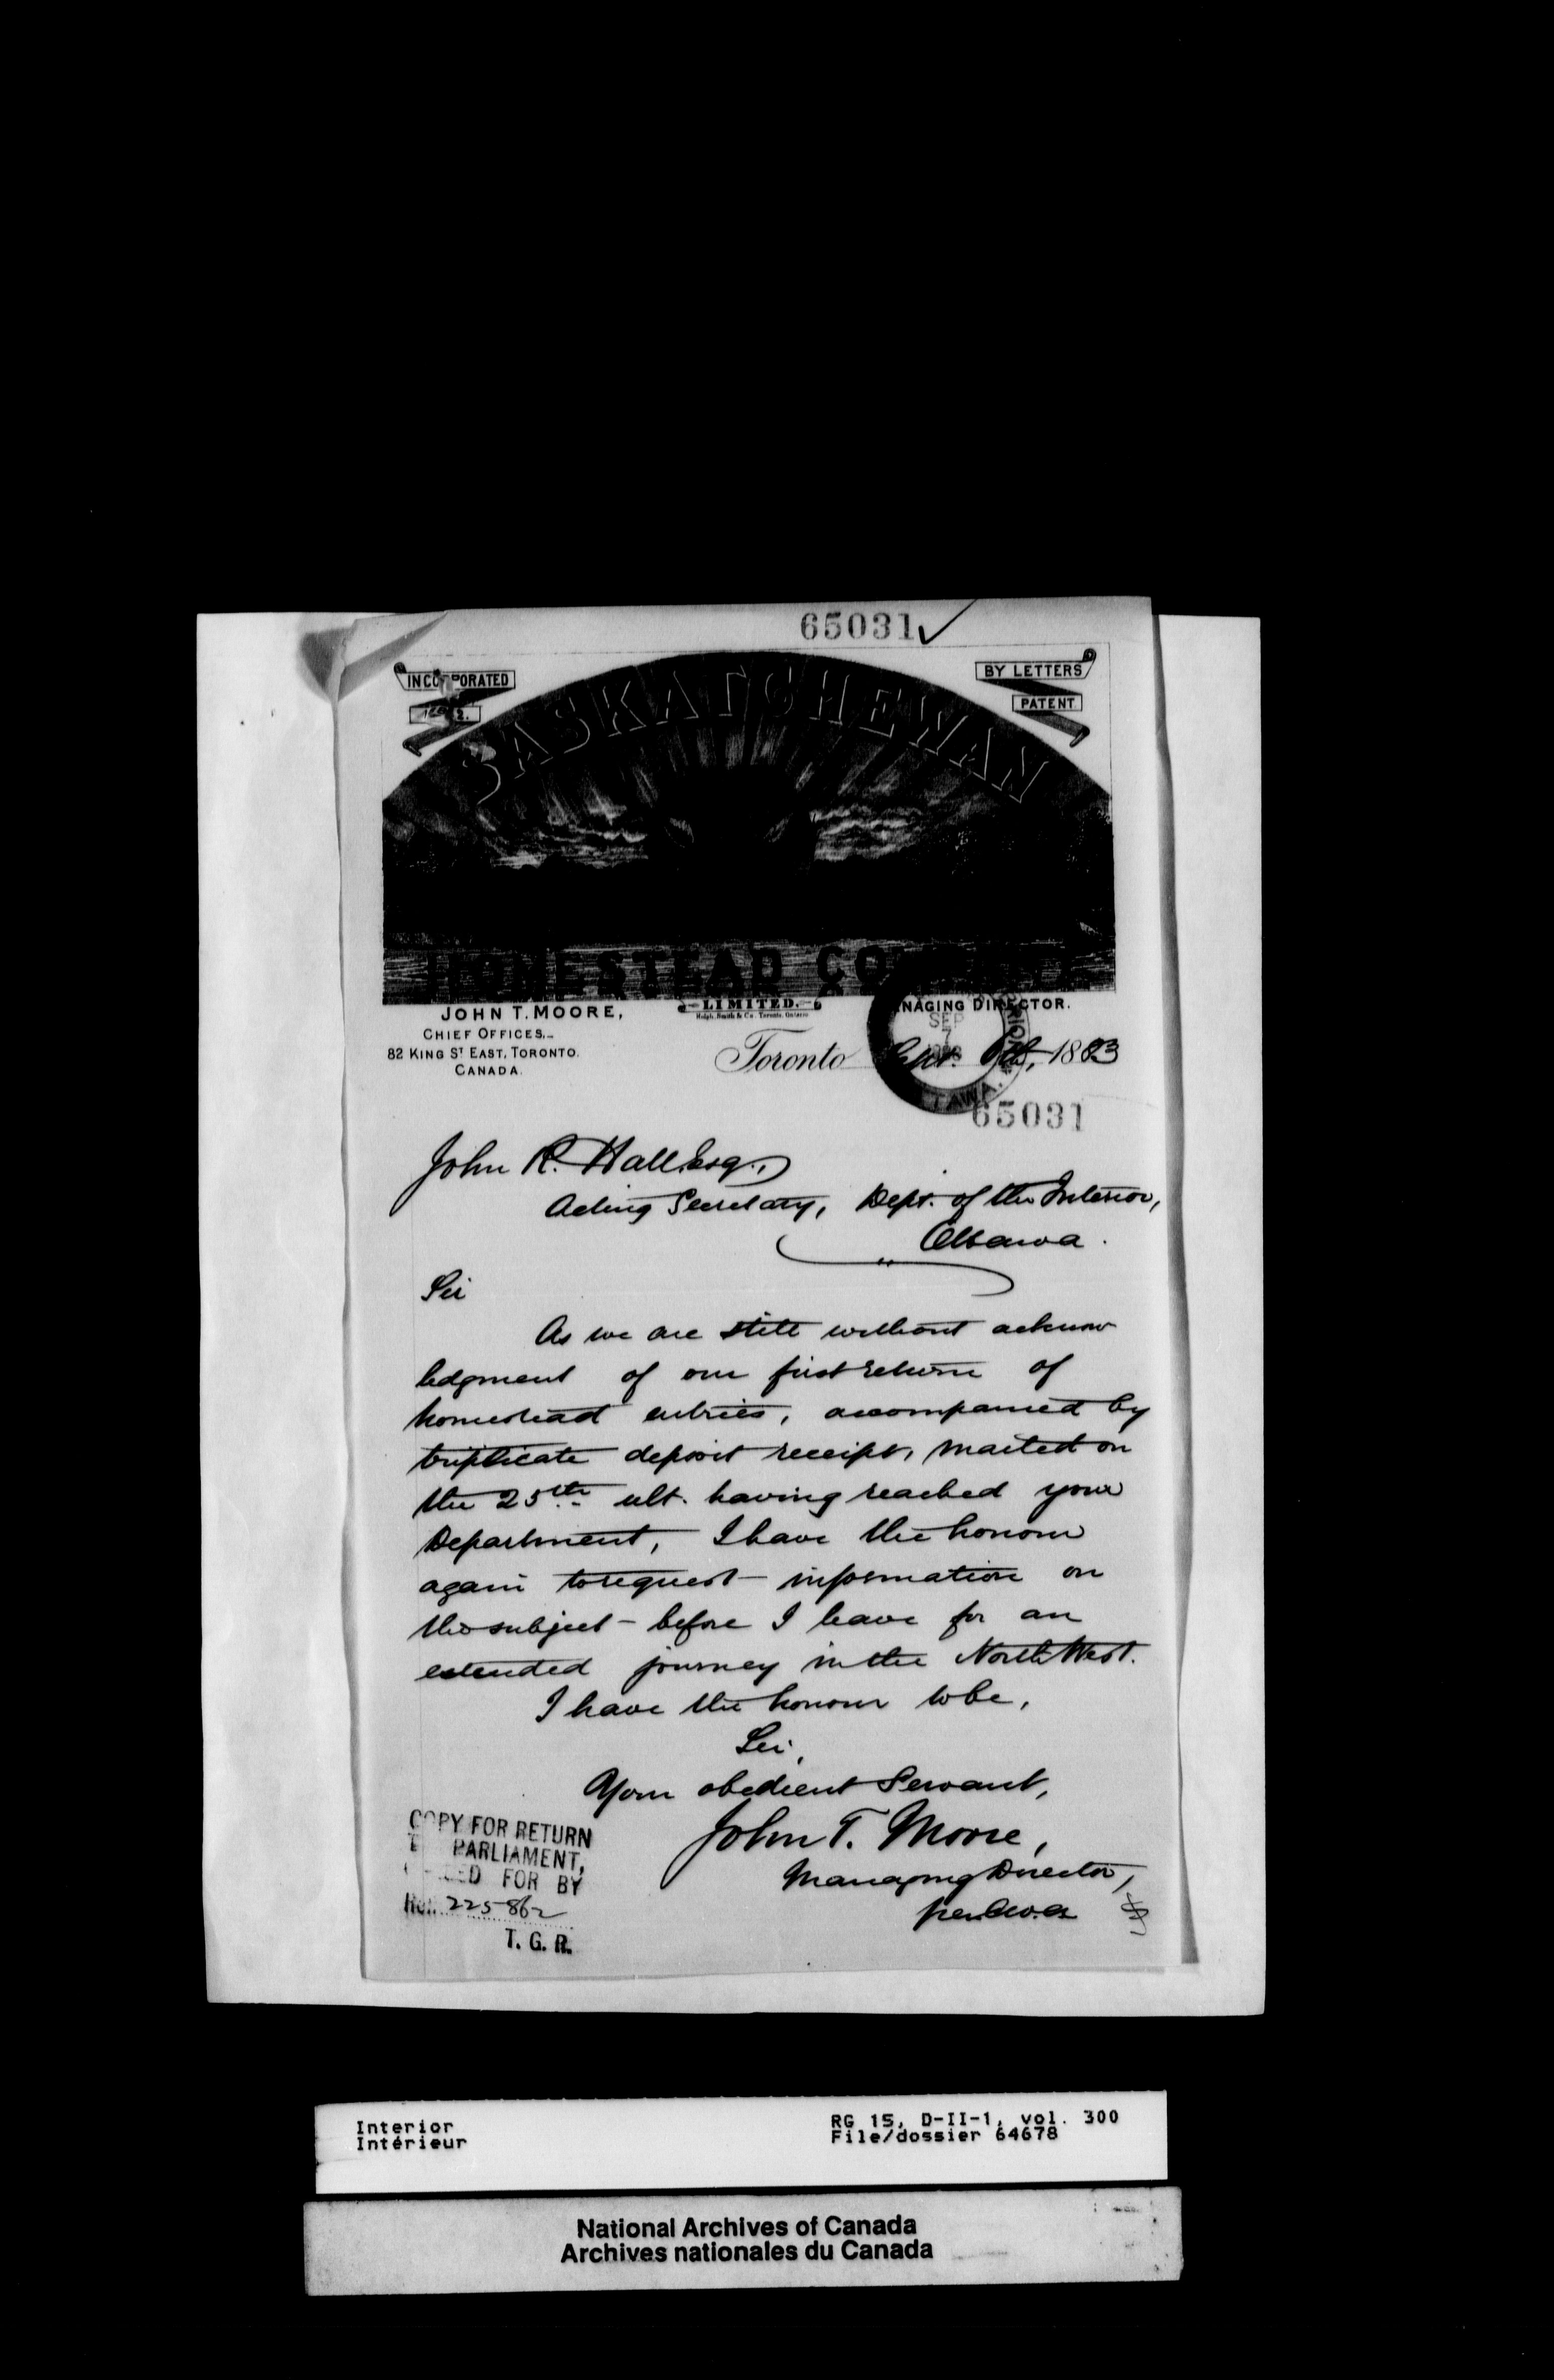 65031
INCORPORATED
BY LETTERS
PATENT
SASKATCHEWAN
HOMESTEAD CO
LIMITED.
Rolph, Smith & Co. Toronto, Ontario
JOHN T. MOORE,
MANAGING DIRECTOR.
CHIEF OFFICES,
82 KING ST EAST, TORONTO.
CANADA.
SEP
7
Toronto Sept. 6th, 1883
65031
John R. Hall Esq.,
Acting Secretary, Dept. of the Interior,
Ottawa.
Sir
As we are still without acknow
ledgment of our first return of
homestead entries, accompanied by
triplicate deposit receipt, mailed on
the 25th ult. having reached your
Department, I have the honour
again to request information on
the subject - before I leave for an
extended journey in the North West.
I have the honour to be,
Sir,
Your obedient Servant,
John T. Moore,
Managing Director,
COPY FOR RETURN
PARLIAMENT,
FOR BY
Hon. 225862
T. G. R.
Interior
Intérieur
RG 15, D-II-1, vol. 300
File/dossier 64678
National Archives of Canada
Archives nationales du Canada